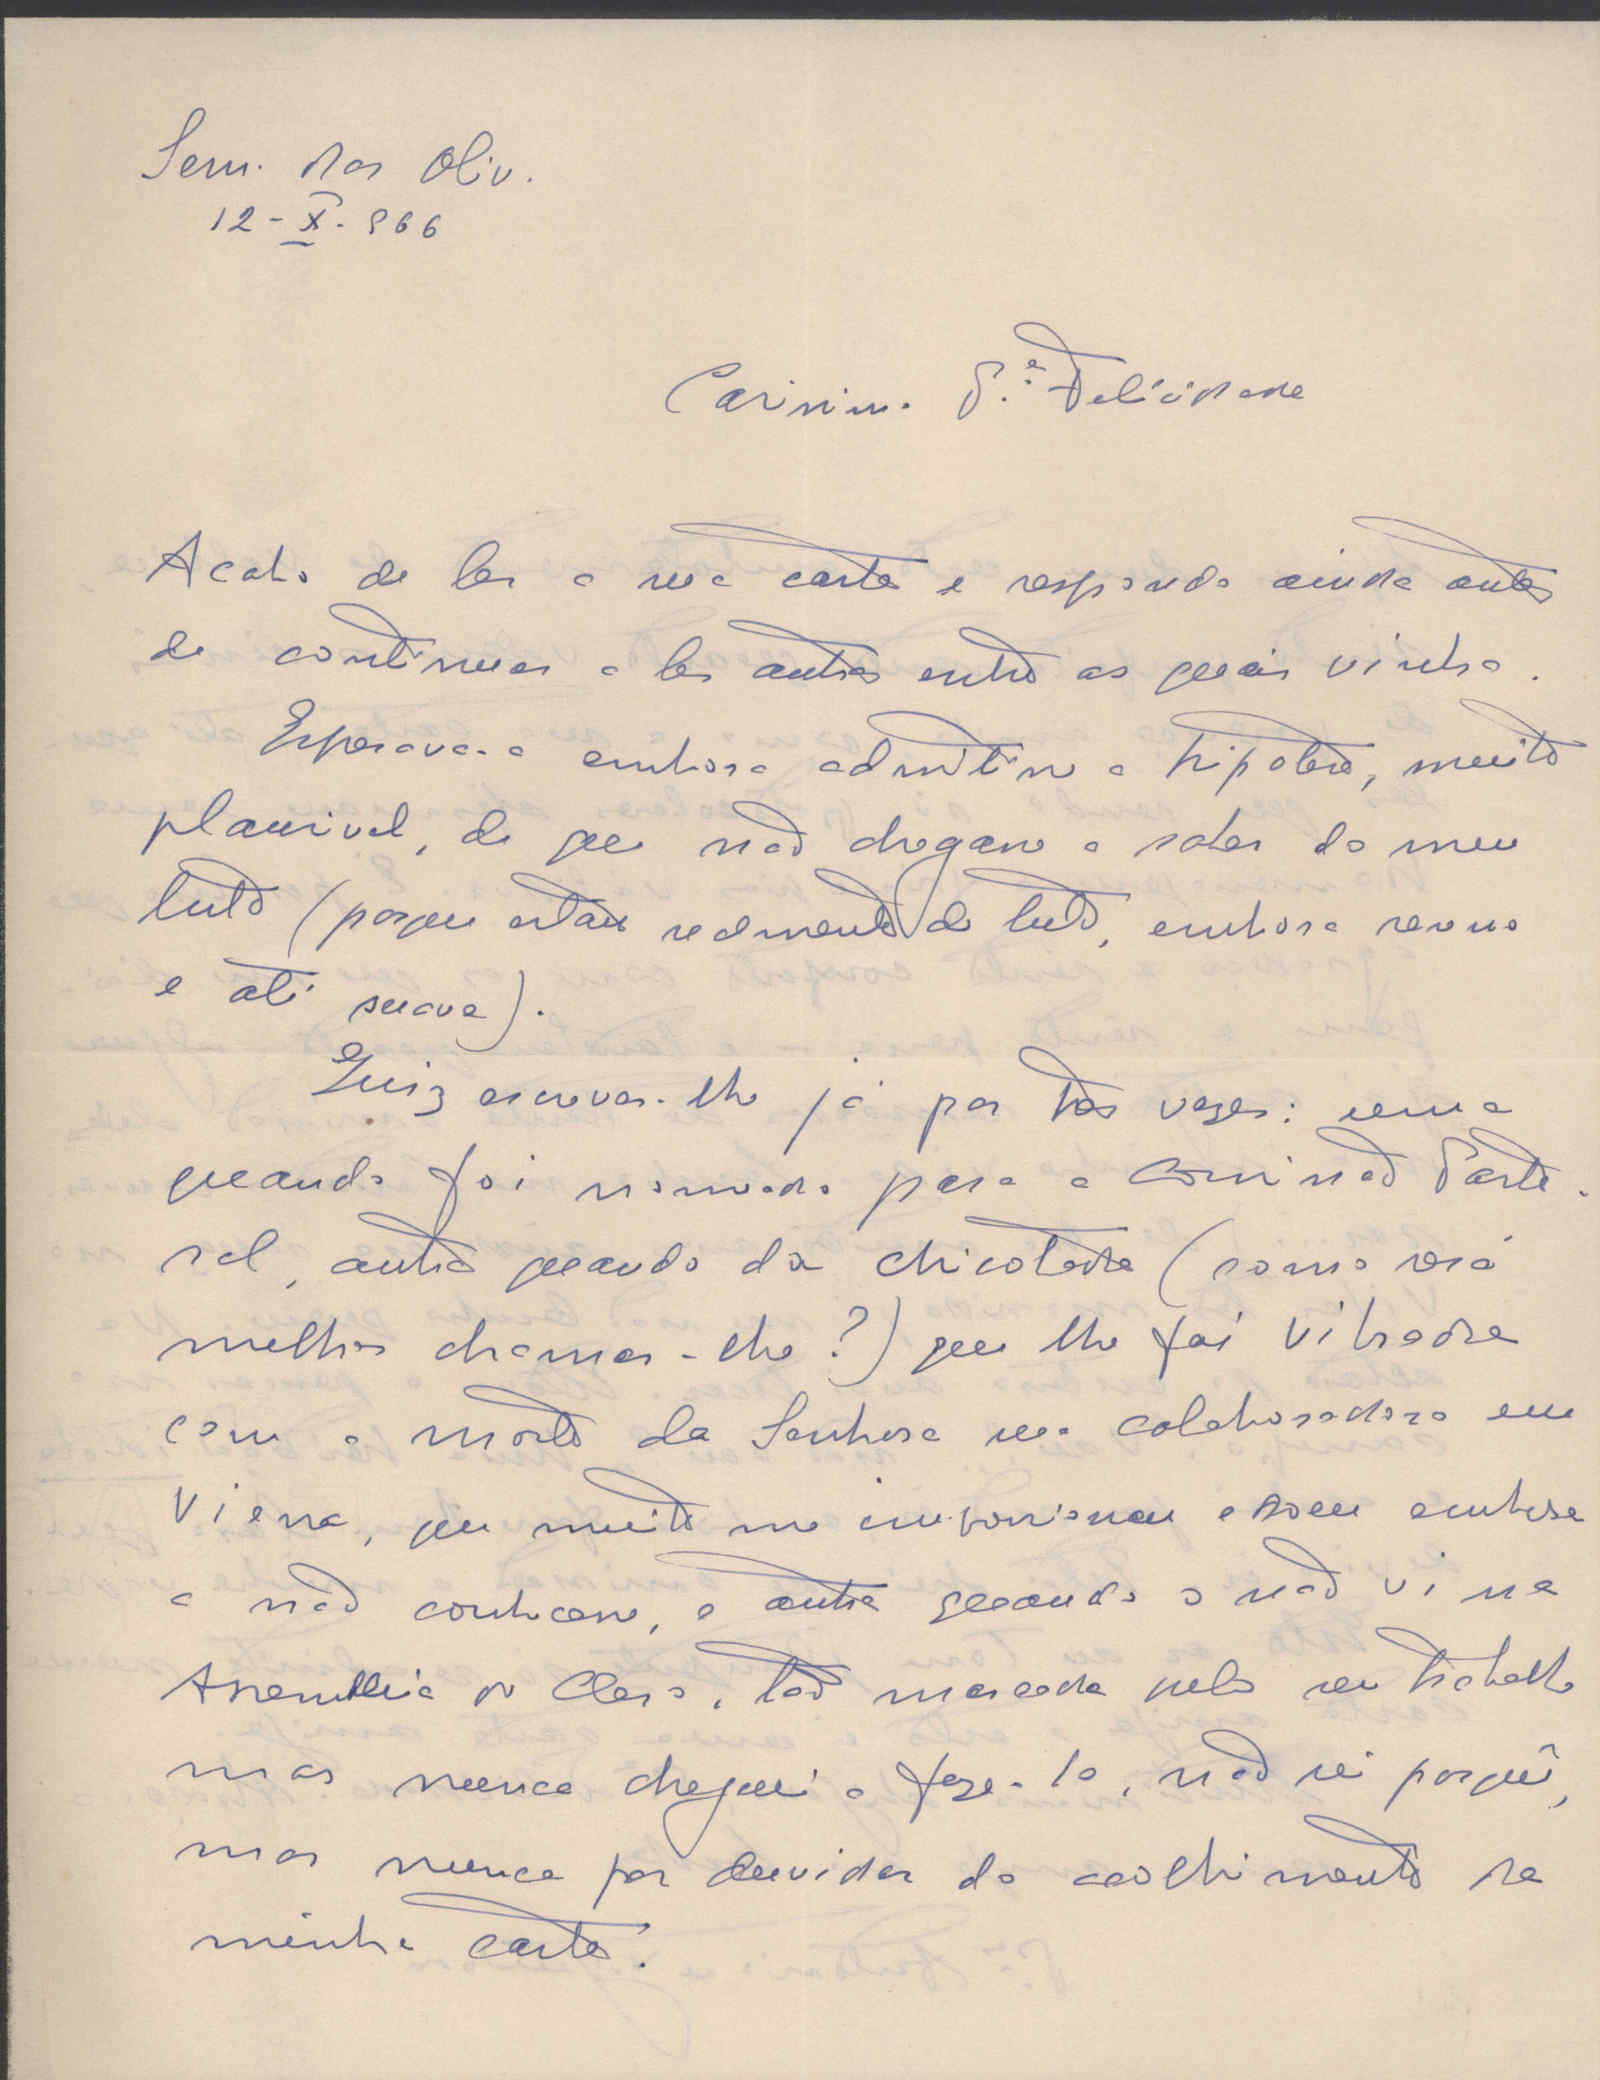 Sem. dos Oliv.
12-X-966
Caríssim. P.e Felicidade
Acabo de ler a sua carta e respondo ainda antes
de continuar a ler outras entre as quais vinha.
Esperava-a embora admitisse a hipótese, muito
plausivel, de que não chegasse a saber do meu
luto (porque estou realmente de luto, embora sereno
e até suave).
Quiz escrever-lhe já por três vezes: uma
quando foi nomeado para a Comissão Pasto-
ral, outra quando da chicotada (como será
melhor chamar-lhe?) que lhe foi vibrada
com a morte da Senhora sua colaboradora em
Viena, que muito me impressionou e doeu embora
a não conhecesse, e outra quando o não vi na
Assembleia do Clero, tão marcada pelo seu trabalho
mas nunca cheguei a faze-lo, não sei porquê,
mas nunca por duvidar do acolhimento da
minha carta.